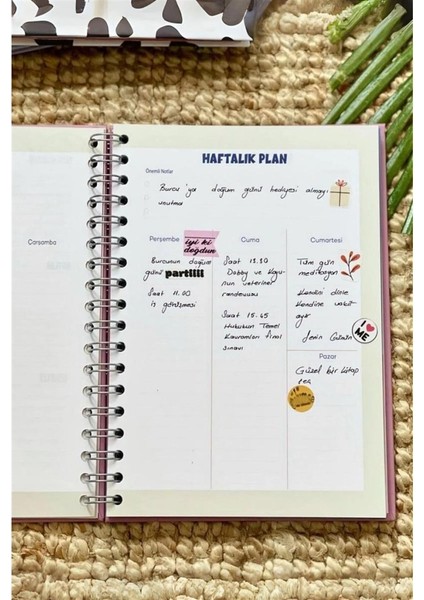 HAFTALIK PLAN
Önemli Notlar
Burcu'ya doğum günü hediyesi almayı
unutma
Çarşamba
Perşembe
iyi ki
doğdun
Burcunun doğum
günü partiiii
Saat 11.00
iş görüşmesi
Cuma
Saat 13.30
Dobby ve Koyu-
nun veteriner
randevusu
Saat 15.45
Hukukun Temel
Kavramları final
sınavı
Cumartesi
Tüm gün
meditasyon
Kendini dinle
Kendine vakit
ayır
Senin Günün
I
ME
Pazar
Güzel bir kitap
seç